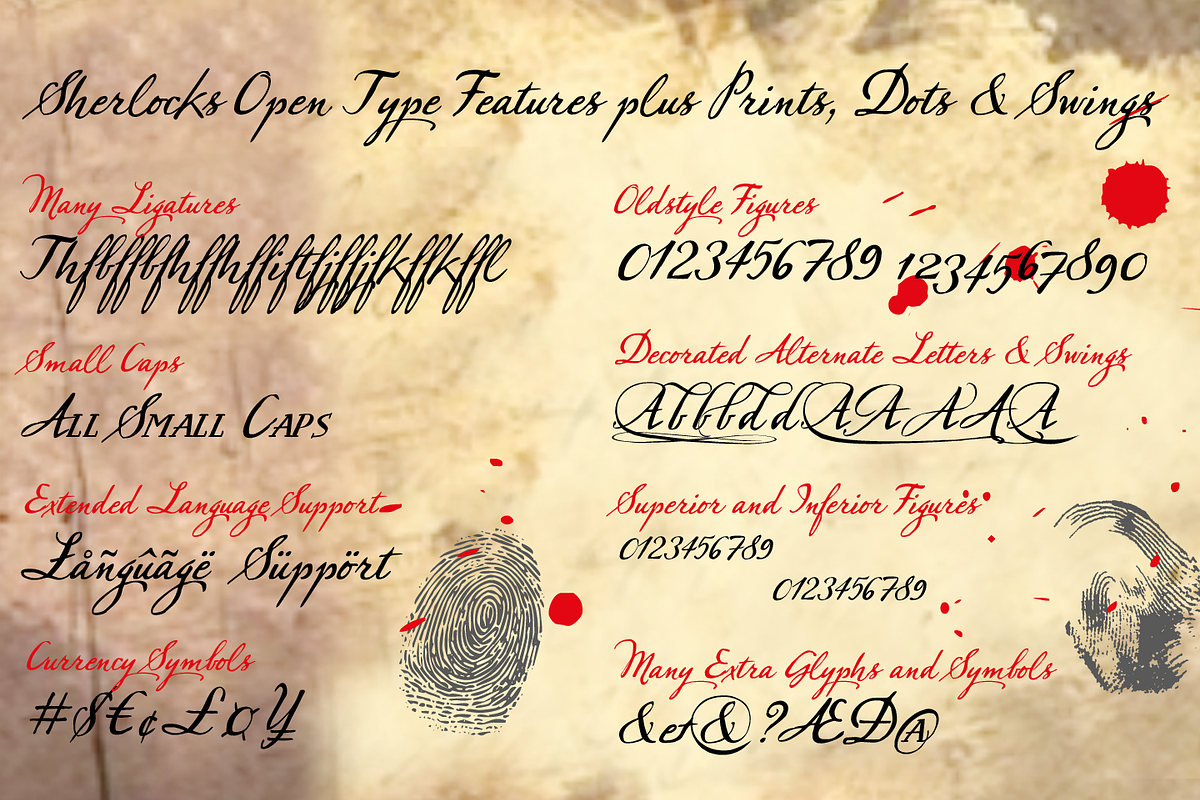 Sherlocks Open Type Features plus Prints, Dots & Swings
Many Ligatures
Small Caps
All Small Caps
Extended Language Support
Łåñgûãgë Süppört
Currency Symbols
#$€¢£¤¥
Oldstyle Figures
0123456789 1234567890
Decorated Alternate Letters & Swings
AbbbddAAAAA
Superior and Inferior Figures
0123456789
0123456789
Many Extra Glyphs and Symbols
&et&?ÆÐ@